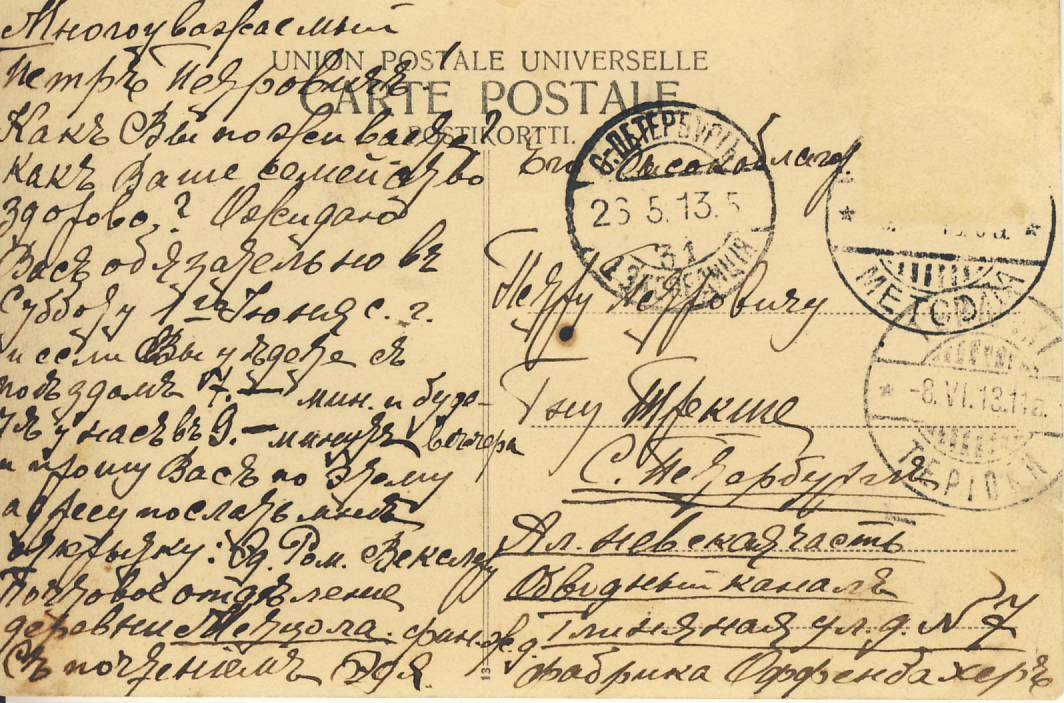 Многоуважаемый
Петръ Петровичъ!
Какъ Вы поживаете?
какъ Ваше семейство
здорово? Ожидаю
Васъ обязательно въ
Субботу 1го Июня с. г.
и если Вы уѣдете съ
поѣздомъ 7.— мин. и буде-
те у насъ въ 9.— минутъ вечера
и прошу Васъ по этому
адресу послать мнѣ
открытку: Эд. Ром. Векслеру
Почтовое отдѣление
деревни Метцола. финл. ж. д.
Съ почтениемъ Эдя.
UNION POSTALE UNIVERSELLE
CARTE POSTALE
POSTIKORTTI.
Его Высокоблагор.
Петру Петровичу
Гну Трекше
С. Петербургъ
Ал. невская часть
Обводный каналъ
Глиняная ул. д. № 7
фабрика Оффенбахеръ
С-ПЕТЕРБУРГЪ
26.5.13.5
31
ЭКСПЕДИЦІЯ
МЕТСОЛЯ
-8.VI.13.11a.
ТЕРІОКИ
13